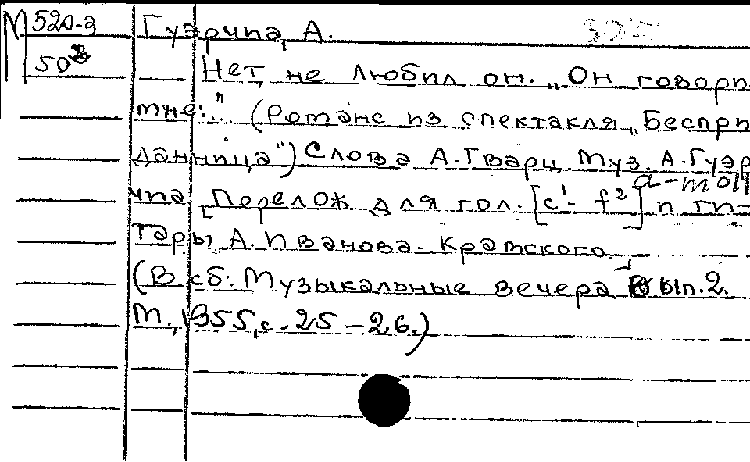 М 520-2 Гуэрчиа, А.
50
Нет, не любил он. „Он говори
мне:..." (Романс из спектакля „Беспри
данница") Слова А. Гварц Муз. А. Гуэр
a-moll
чиа. [Перелож для гол. [c¹- f²] и ги-
тары А. Иванова-Крамского
(В сб: Музыкальные вечера Вып. 2.
М., 1955, с. 25-26.)